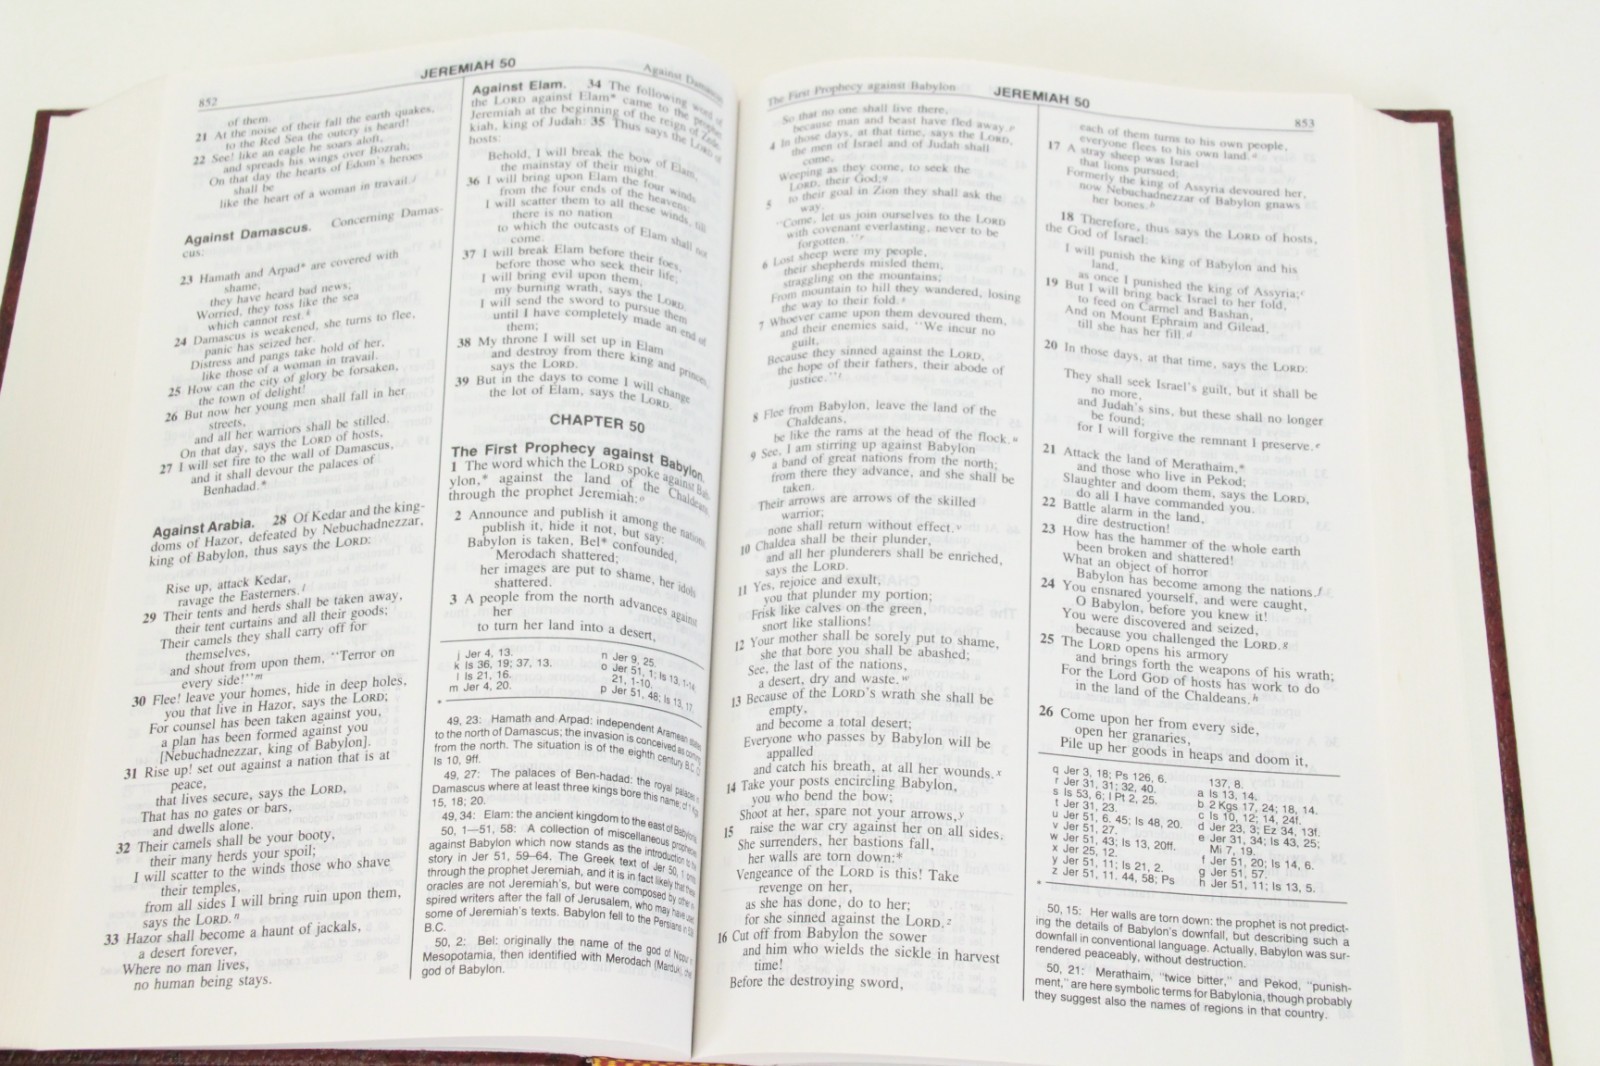 852
JEREMIAH 50
Against Damascus
of them.
21 At the noise of their fall the earth quakes,
to the Red Sea the outcry is heard!
22 See! like an eagle he soars aloft,
and spreads his wings over Bozrah;
On that day the hearts of Edom's heroes
shall be
like the heart of a woman in travail.j
Against Damascus. Concerning Damas-
cus:
23 Hamath and Arpad* are covered with
shame,
they have heard bad news;
Worried, they toss like the sea
which cannot rest.k
24 Damascus is weakened, she turns to flee,
panic has seized her.
Distress and pangs take hold of her,
like those of a woman in travail.
25 How can the city of glory be forsaken,
the town of delight!
26 But now her young men shall fall in her
streets,
and all her warriors shall be stilled.
On that day, says the LORD of hosts,
27 I will set fire to the wall of Damascus,
and it shall devour the palaces of
Benhadad.*
Against Arabia. 28 Of Kedar and the king-
doms of Hazor, defeated by Nebuchadnezzar,
king of Babylon, thus says the LORD:
Rise up, attack Kedar,
ravage the Easterners.l
29 Their tents and herds shall be taken away,
their tent curtains and all their goods;
Their camels they shall carry off for
themselves,
and shout from upon them, "Terror on
every side!"m
30 Flee! leave your homes, hide in deep holes,
you that live in Hazor, says the LORD;
For counsel has been taken against you,
a plan has been formed against you
[Nebuchadnezzar, king of Babylon].
31 Rise up! set out against a nation that is at
peace,
that lives secure, says the LORD,
That has no gates or bars,
and dwells alone.
32 Their camels shall be your booty,
their many herds your spoil;
I will scatter to the winds those who shave
their temples,
from all sides I will bring ruin upon them,
says the LORD.n
33 Hazor shall become a haunt of jackals,
a desert forever,
Where no man lives,
no human being stays.
Against Elam. 34 The following word of
the LORD against Elam* came to the prophet
Jeremiah at the beginning of the reign of Zede-
kiah, king of Judah: 35 Thus says the LORD of
hosts:
Behold, I will break the bow of Elam,
the mainstay of their might.
36 I will bring upon Elam the four winds
from the four ends of the heavens:
I will scatter them to all these winds, till
there is no nation
to which the outcasts of Elam shall not
come.
37 I will break Elam before their foes,
before those who seek their life;
I will bring evil upon them,
my burning wrath, says the LORD.
I will send the sword to pursue them
until I have completely made an end of
them;
38 My throne I will set up in Elam
and destroy from there king and princes,
says the LORD.
39 But in the days to come I will change
the lot of Elam, says the LORD.
CHAPTER 50
The First Prophecy against Babylon.
1 The word which the LORD spoke against Bab-
ylon,* against the land of the Chaldeans,
through the prophet Jeremiah:o
2 Announce and publish it among the nations,
publish it, hide it not, but say:
Babylon is taken, Bel* confounded,
Merodach shattered;
her images are put to shame, her idols
shattered.
3 A people from the north advances against
her
to turn her land into a desert,
j Jer 4, 13.
k Is 36, 19; 37, 13.
l Is 21, 16.
m Jer 4, 20.
n Jer 9, 25.
o Jer 51, 1; Is 13, 1-14
21, 1-10.
p Jer 51, 48; Is 13, 17.
*
49, 23: Hamath and Arpad: independent Aramean states
to the north of Damascus; the invasion is conceived as coming
from the north. The situation is of the eighth century B.C.
Is 10, 9ff.
49, 27: The palaces of Ben-hadad: the royal palaces in
Damascus where at least three kings bore this name; cf 1 Kgs
15, 18; 20.
49, 34: Elam: the ancient kingdom to the east of Babylonia.
50, 1—51, 58: A collection of miscellaneous prophecies
against Babylon which now stands as the introduction to the
story in Jer 51, 59-64. The Greek text of Jer 50, 1 omits
through the prophet Jeremiah, and it is in fact likely that these
oracles are not Jeremiah's, but were composed by other in-
spired writers after the fall of Jerusalem, who may have used
some of Jeremiah's texts. Babylon fell to the Persians in 539
B.C.
50, 2: Bel: originally the name of the god of Nippur in
Mesopotamia, then identified with Merodach (Marduk), the
god of Babylon.
The First Prophecy against Babylon
JEREMIAH 50
853
So that no one shall live there,
because man and beast have fled away.p
4 In those days, at that time, says the LORD,
the men of Israel and of Judah shall
come,
Weeping as they come, to seek the
LORD, their God;q
5 to their goal in Zion they shall ask the
way.
"Come, let us join ourselves to the LORD
with covenant everlasting, never to be
forgotten."r
6 Lost sheep were my people,
their shepherds misled them,
straggling on the mountains;
From mountain to hill they wandered, losing
the way to their fold.s
7 Whoever came upon them devoured them,
and their enemies said, "We incur no
guilt,
Because they sinned against the LORD,
the hope of their fathers, their abode of
justice."t
8 Flee from Babylon, leave the land of the
Chaldeans,
be like the rams at the head of the flock.u
9 See, I am stirring up against Babylon
a band of great nations from the north;
from there they advance, and she shall be
taken.
Their arrows are arrows of the skilled
warrior;
none shall return without effect.v
10 Chaldea shall be their plunder,
and all her plunderers shall be enriched,
says the LORD.
11 Yes, rejoice and exult,
you that plunder my portion;
Frisk like calves on the green,
snort like stallions!
12 Your mother shall be sorely put to shame,
she that bore you shall be abashed;
See, the last of the nations,
a desert, dry and waste.w
13 Because of the LORD's wrath she shall be
empty,
and become a total desert;
Everyone who passes by Babylon will be
appalled
and catch his breath, at all her wounds.x
14 Take your posts encircling Babylon,
you who bend the bow;
Shoot at her, spare not your arrows,y
15 raise the war cry against her on all sides.
She surrenders, her bastions fall,
her walls are torn down:*
Vengeance of the LORD is this! Take
revenge on her,
as she has done, do to her;
for she sinned against the LORD.z
16 Cut off from Babylon the sower
and him who wields the sickle in harvest
time!
Before the destroying sword,
each of them turns to his own people,
everyone flees to his own land.a
17 A stray sheep was Israel
that lions pursued;
Formerly the king of Assyria devoured her,
now Nebuchadnezzar of Babylon gnaws
her bones.b
18 Therefore, thus says the LORD of hosts,
the God of Israel:
I will punish the king of Babylon and his
land,
as once I punished the king of Assyria;c
19 But I will bring back Israel to her fold,
to feed on Carmel and Bashan,
And on Mount Ephraim and Gilead,
till she has her fill.d
20 In those days, at that time, says the LORD:
They shall seek Israel's guilt, but it shall be
no more,
and Judah's sins, but these shall no longer
be found;
for I will forgive the remnant I preserve.e
21 Attack the land of Merathaim,*
and those who live in Pekod;
Slaughter and doom them, says the LORD,
do all I have commanded you.
22 Battle alarm in the land,
dire destruction!
23 How has the hammer of the whole earth
been broken and shattered!
What an object of horror
Babylon has become among the nations.f
24 You ensnared yourself, and were caught,
O Babylon, before you knew it!
You were discovered and seized,
because you challenged the LORD.g
25 The LORD opens his armory
and brings forth the weapons of his wrath;
For the Lord GOD of hosts has work to do
in the land of the Chaldeans.h
26 Come upon her from every side,
open her granaries,
Pile up her goods in heaps and doom it,
q Jer 3, 18; Ps 126, 6.
r Jer 31, 31; 32, 40.
s Is 53, 6; 1 Pt 2, 25.
t Jer 31, 23.
u Jer 51, 6. 45; Is 48, 20.
v Jer 51, 27.
w Jer 51, 43; Is 13, 20ff.
x Jer 25, 12.
y Jer 51, 11; Is 21, 2.
z Jer 51, 11. 44, 58; Ps
137, 8.
a Is 13, 14.
b 2 Kgs 17, 24; 18, 14.
c Is 10, 12; 14, 24f.
d Jer 23, 3; Ez 34, 13f.
e Jer 31, 34; Is 43, 25;
Mi 7, 19.
f Jer 51, 20; Is 14, 6.
g Jer 51, 57.
h Jer 51, 11; Is 13, 5.
*
50, 15: Her walls are torn down: the prophet is not predict-
ing the details of Babylon's downfall, but describing such a
downfall in conventional language. Actually, Babylon was sur-
rendered peaceably, without destruction.
50, 21: Merathaim, "twice bitter," and Pekod, "punish-
ment," are here symbolic terms for Babylonia, though probably
they suggest also the names of regions in that country.